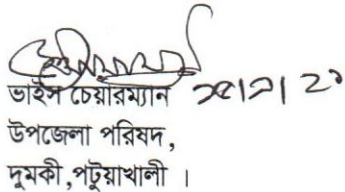 ভাইস চেয়ারম্যান
উপজেলা পরিষদ,
দুমকী,পটুয়াখালী ।